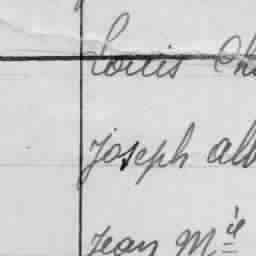 Louis Ch
Joseph alb
Jean M^ie